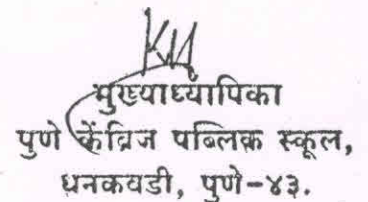 मुख्याध्यापिका
पुणे केंब्रिज पब्लिक स्कूल,
धनकवडी, पुणे-४३.